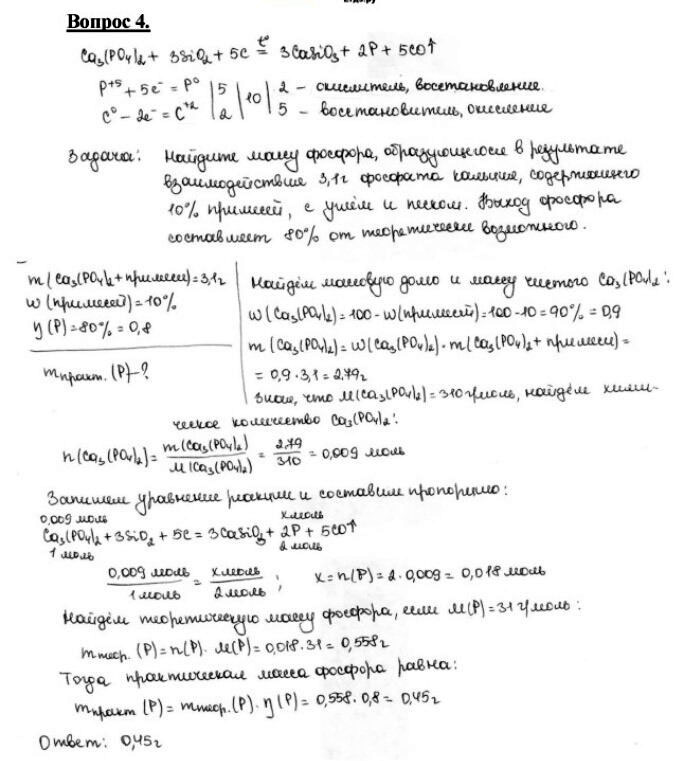 Вопрос 4.
Ca₃(PO₄)₂ + 3SiO₂ + 5C =t° 3CaSiO₃ + 2P + 5CO↑
P⁺⁵ + 5e⁻ = P⁰ | 5 | 10 | 2 – окислитель, восстановление.
C⁰ – 2e⁻ = C⁺² | 2 | 5 – восстановитель, окисление
Задача: Найдите массу фосфора, образующегося в результате
взаимодействие 3,1г фосфата кальция, содержащего
10% примесей, с углём и песком. Выход фосфора
составляет 80% от теоретически возможного.
m(Ca₃(PO₄)₂+примеси)=3,1г
w(примесей)=10%
η(P)=80%=0,8
mпракт.(P)-?
Найдём массовую долю и массу чистого Ca₃(PO₄)₂:
w(Ca₃(PO₄)₂)=100-w(примесей)=100-10=90%=0,9
m(Ca₃(PO₄)₂)=w(Ca₃(PO₄)₂)·m(Ca₃(PO₄)₂+примеси)=
=0,9·3,1=2,79г
Зная, что M(Ca₃(PO₄)₂)=310г/моль, найдём хими-
ческое количество Ca₃(PO₄)₂:
n(Ca₃(PO₄)₂)= m(Ca₃(PO₄)₂)/M(Ca₃(PO₄)₂) = 2,79/310 = 0,009 моль
Запишем уравнение реакции и составим пропорцию:
0,009 моль x моль
Ca₃(PO₄)₂+3SiO₂+5C=3CaSiO₃+2P+5CO↑
1 моль 2 моль
0,009 моль/1 моль = x моль/2 моль ; x=n(P)=2·0,009=0,018 моль
Найдём теоретическую массу фосфора, если M(P)=31 г/моль:
mтеор.(P)=n(P)·M(P)=0,018·31=0,558г
Тогда практическая масса фосфора равна:
mпракт(P)=mтеор.(P)·η(P)=0,558·0,8=0,45г
Ответ: 0,45г